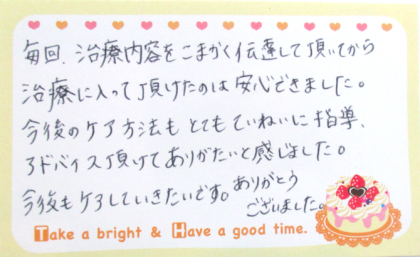 毎回、治療内容をこまかく伝達して頂いてから
治療に入って頂けたのは安心できました。
今後のケア方法もとてもていねいに指導、
アドバイス頂けてありがたいと感じました。
今後もケアしていきたいです。ありがとう
ございました。
Take a bright & Have a good time.